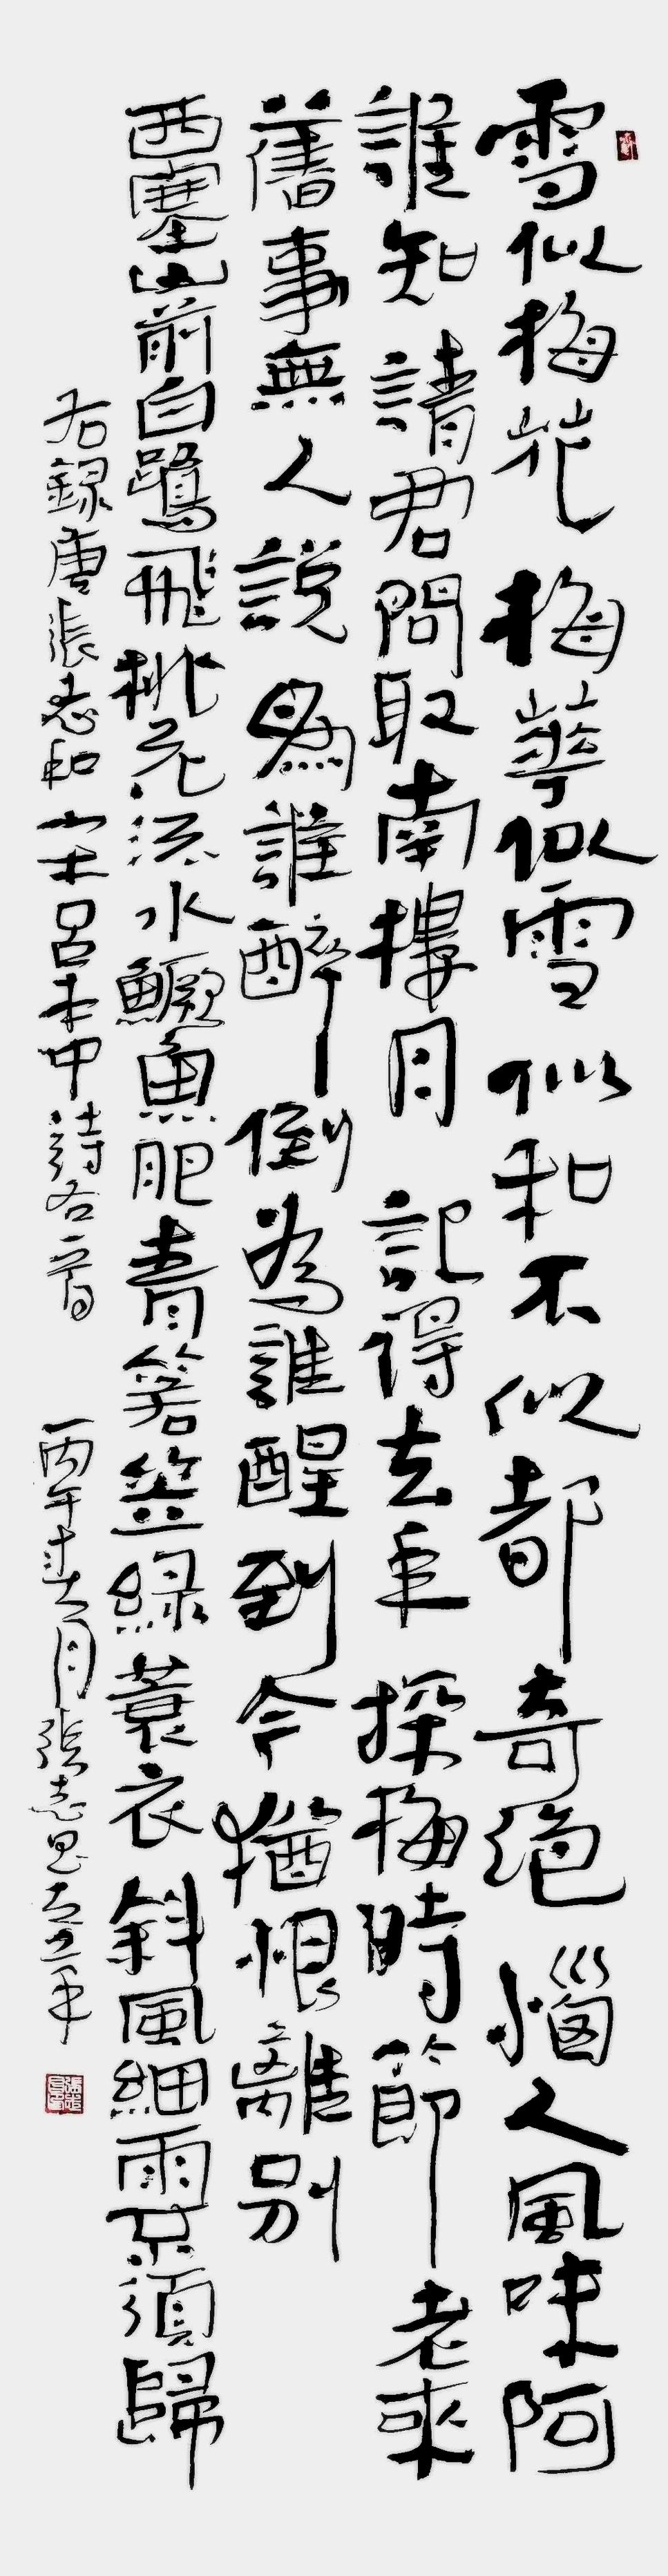 雪似梅花梅華似雪似和不似都奇絕惱人風味阿
誰知請君問取南樓月記得去年探梅時節老來
舊事無人說爲誰醉倒為誰醒到今猶恨離別
西塞山前白鷺飛桃花流水鱖魚肥青箬笠綠蓑衣斜風細雨不須歸
右錄唐張志和宋呂本中詩各一首 丙午春月張志